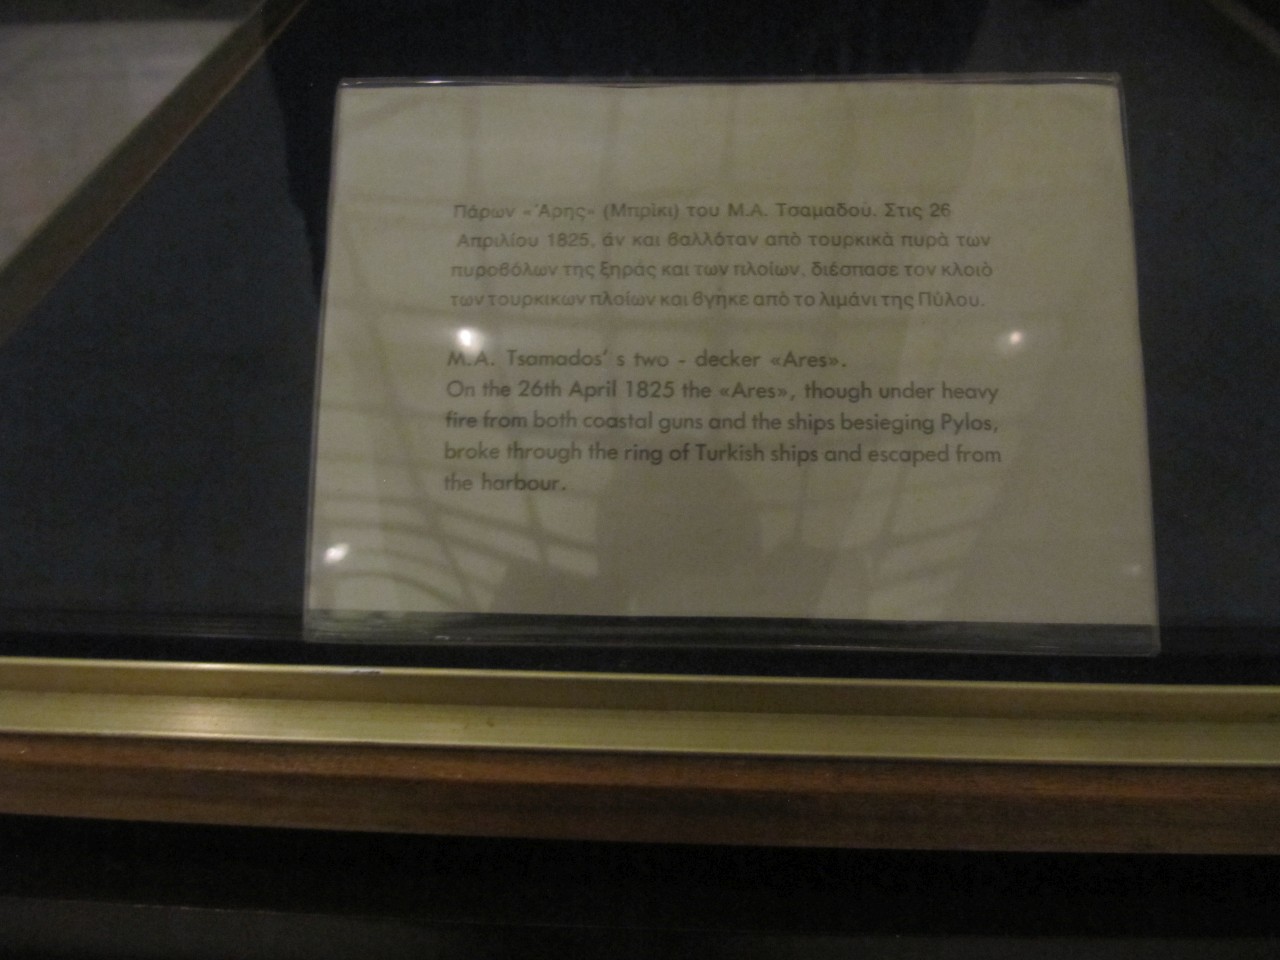 Πάρων «Άρης» (Μπρίκι) του Μ.Α. Τσαμαδού. Στις 26
Απριλίου 1825, άν και βαλλόταν από τουρκικά πυρά των
πυροβόλων της ξηράς και των πλοίων, διέσπασε τον κλοιό
των τουρκικων πλοίων και βγήκε από το λιμάνι της Πύλου.
M.A. Tsamados' s two - decker «Ares».
On the 26th April 1825 the «Ares», though under heavy
fire from both coastal guns and the ships besieging Pylos,
broke through the ring of Turkish ships and escaped from
the harbour.